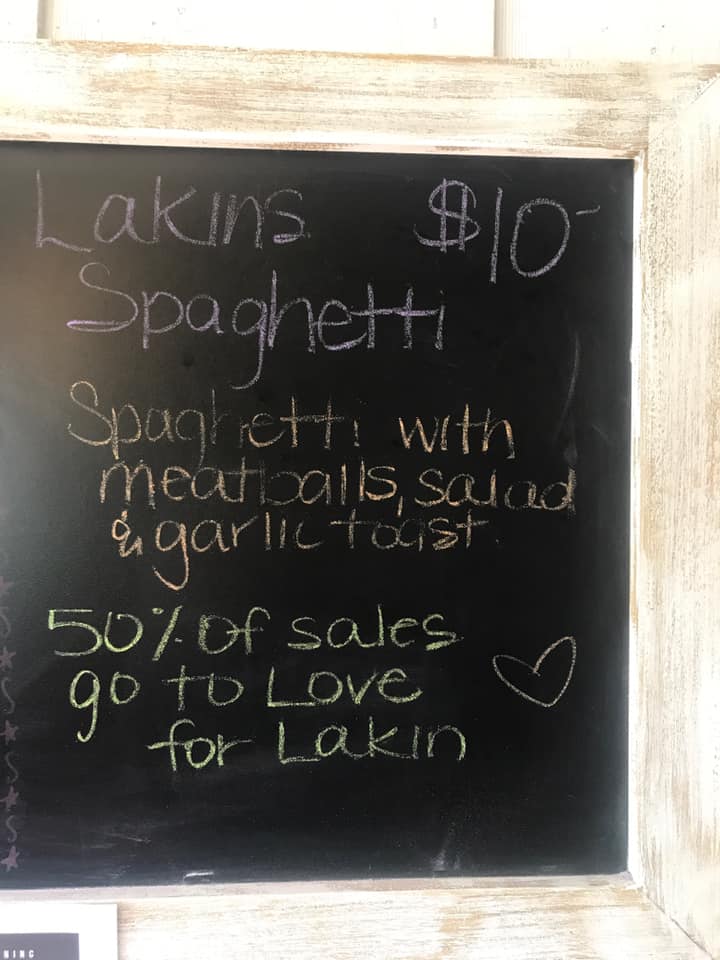 Lakins $10-
Spaghetti
Spaghetti with
meatballs, salad
& garlic toast
50% of sales
go to Love
for Lakin
NING